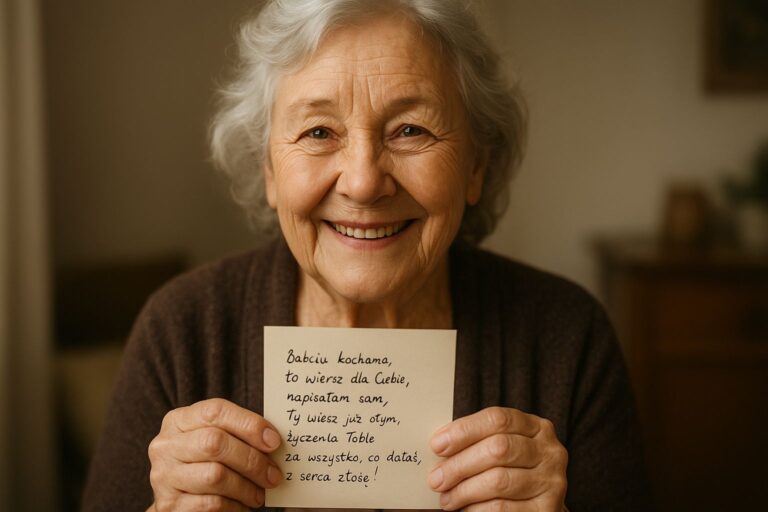 Babciu kochama,
to wiersz dla Ciebie,
napisałam sam,
Ty wiesz już otym,
życzenla Toble
za wszystko, co dałaś,
z serca złośę!